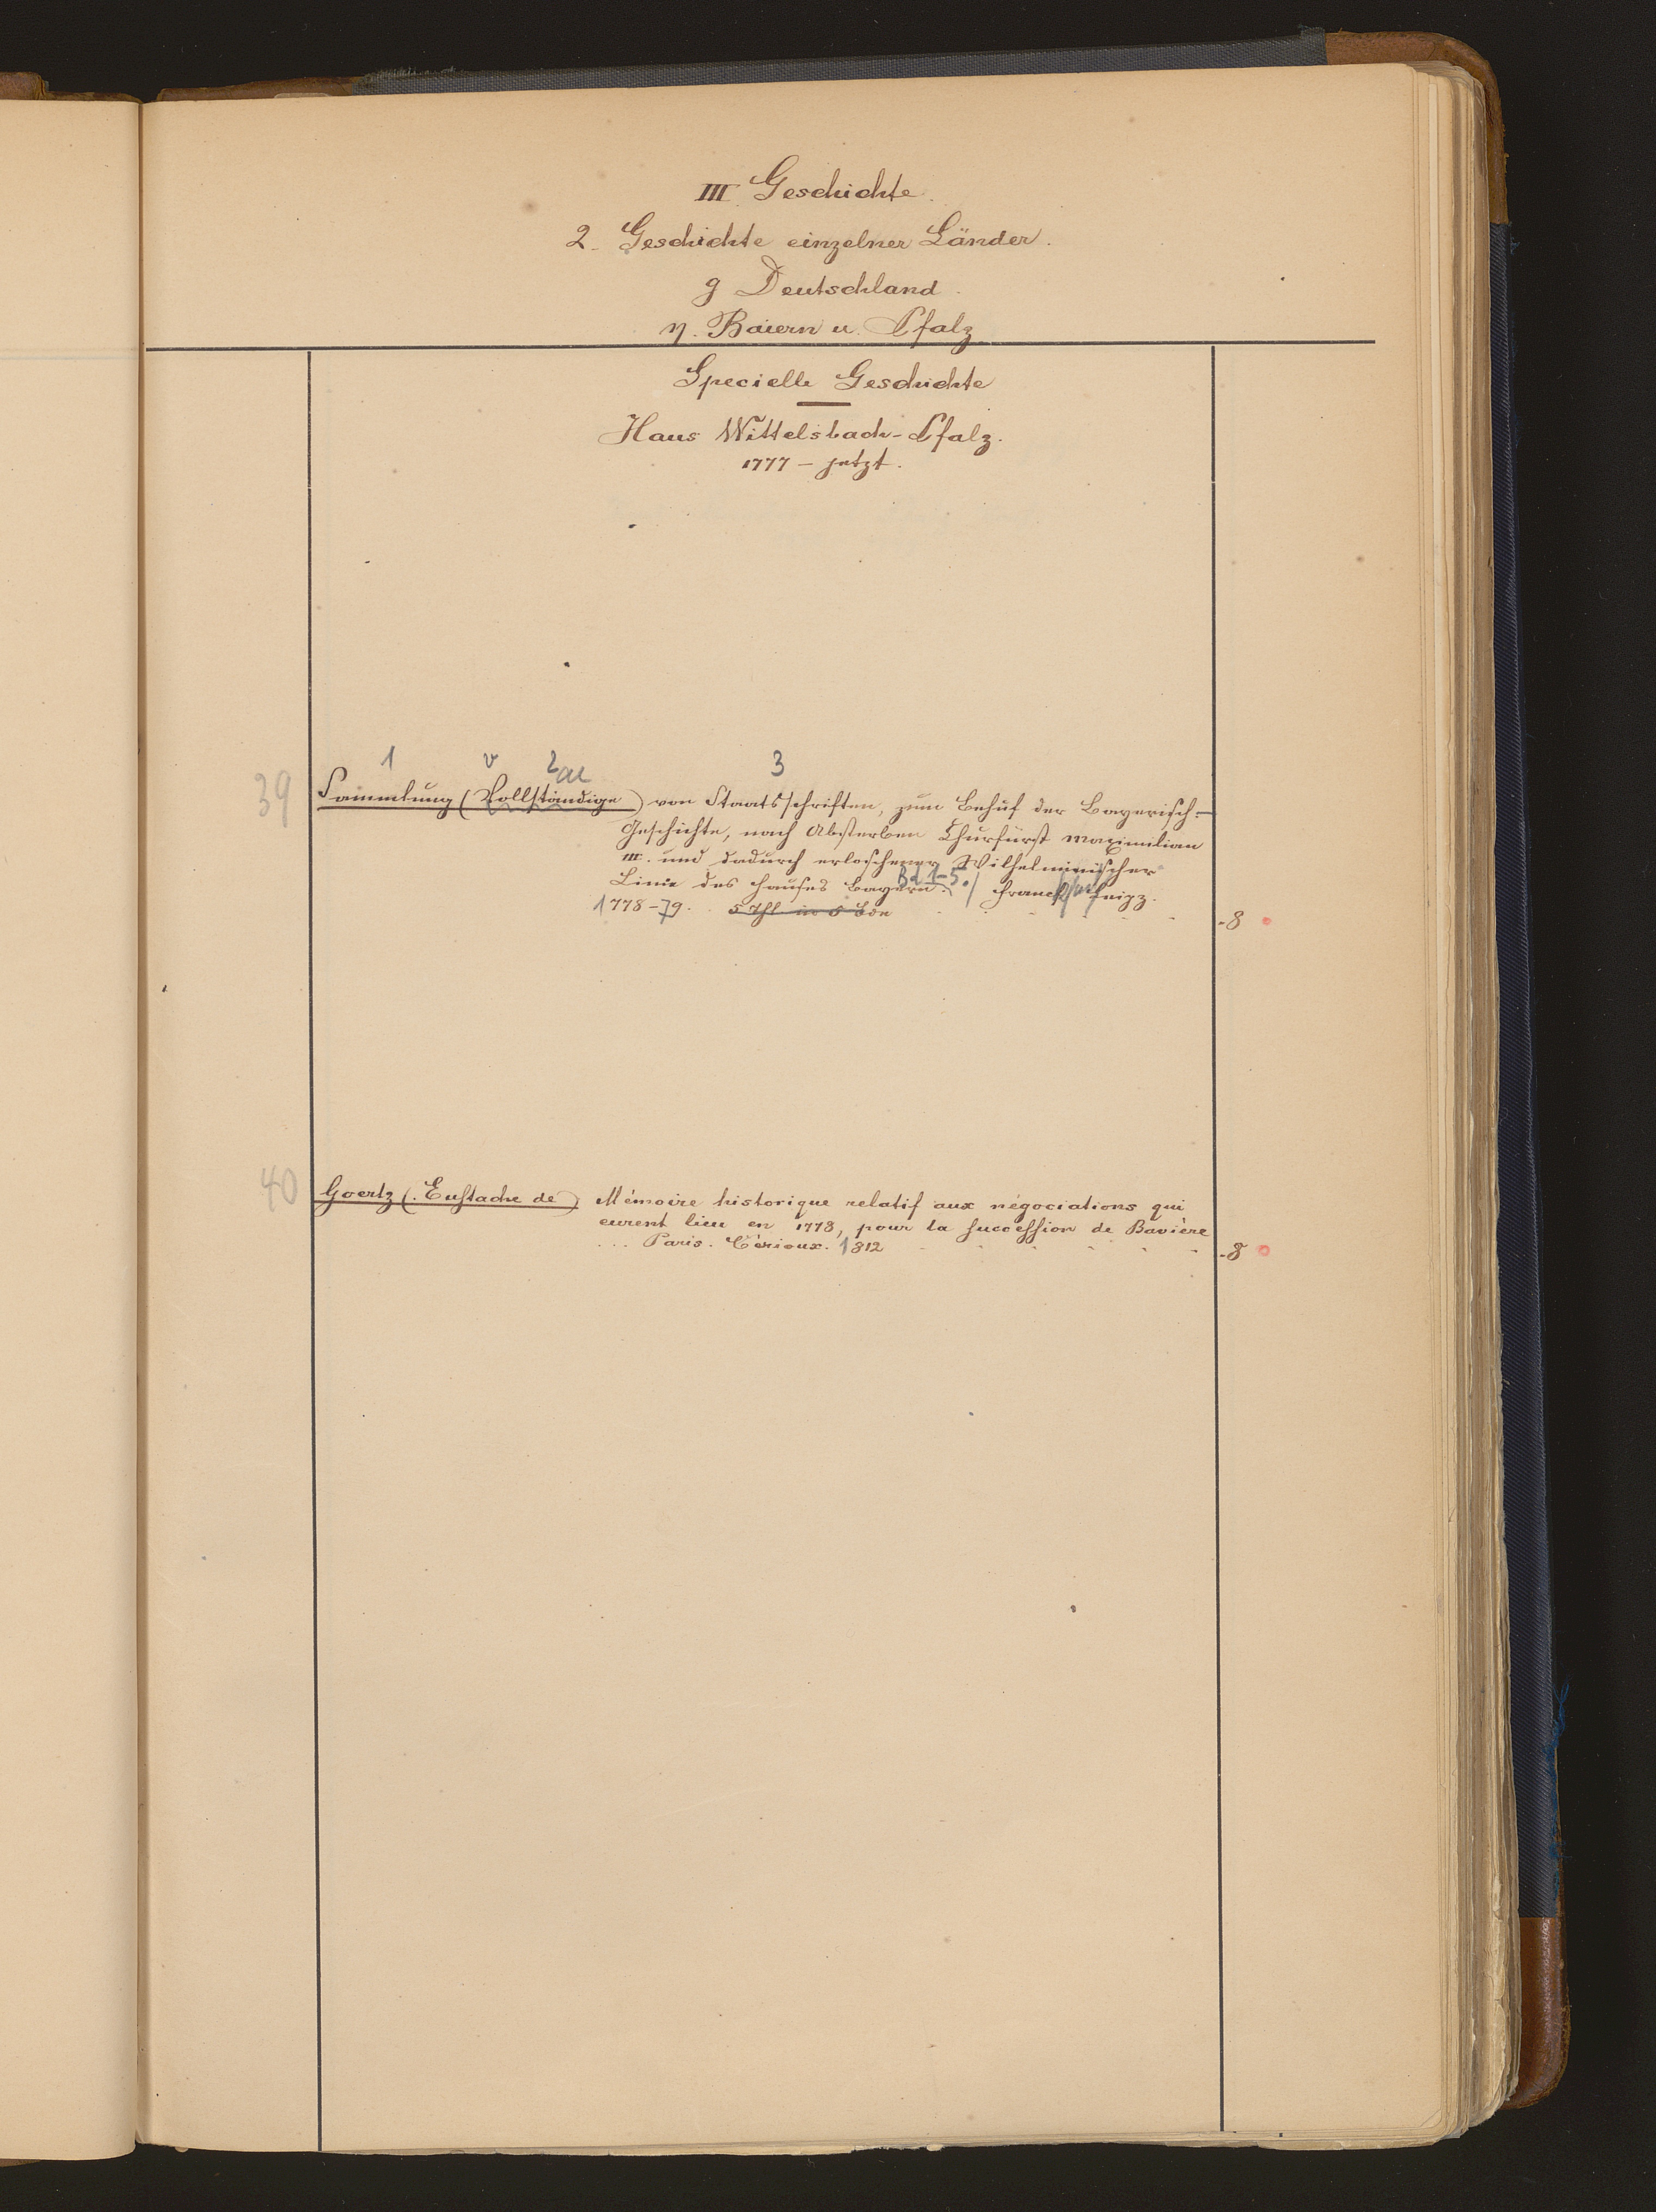 III Geschichte.
2. Geschichte einzelner Länder.
g Deutschland.
η. Baiern u. Pfalz
Specielle Geschichte
Haus Wittelsbach-Pfalz.
1777 - jetzt.
1 v 2 ae 3
39 Sammlung (Vollständige) von Staatsschriften, zum Behuf der Bayerisch.
Geschichte, nach Absterben Churfürst Maximilian
III. und dadurch erloschener Wilhelminischer
Linie des Hauses Bayern. Bd 1-5. Franckf Leipz.
1778-79. 5 Thl in 5 Bdn -8
40 Goertz (Eustache de) Mémoire historique relatif aux négociations qui
eurent lieu en 1778, pour la succession de Bavière
... Paris. Cérioux. 1812 -8